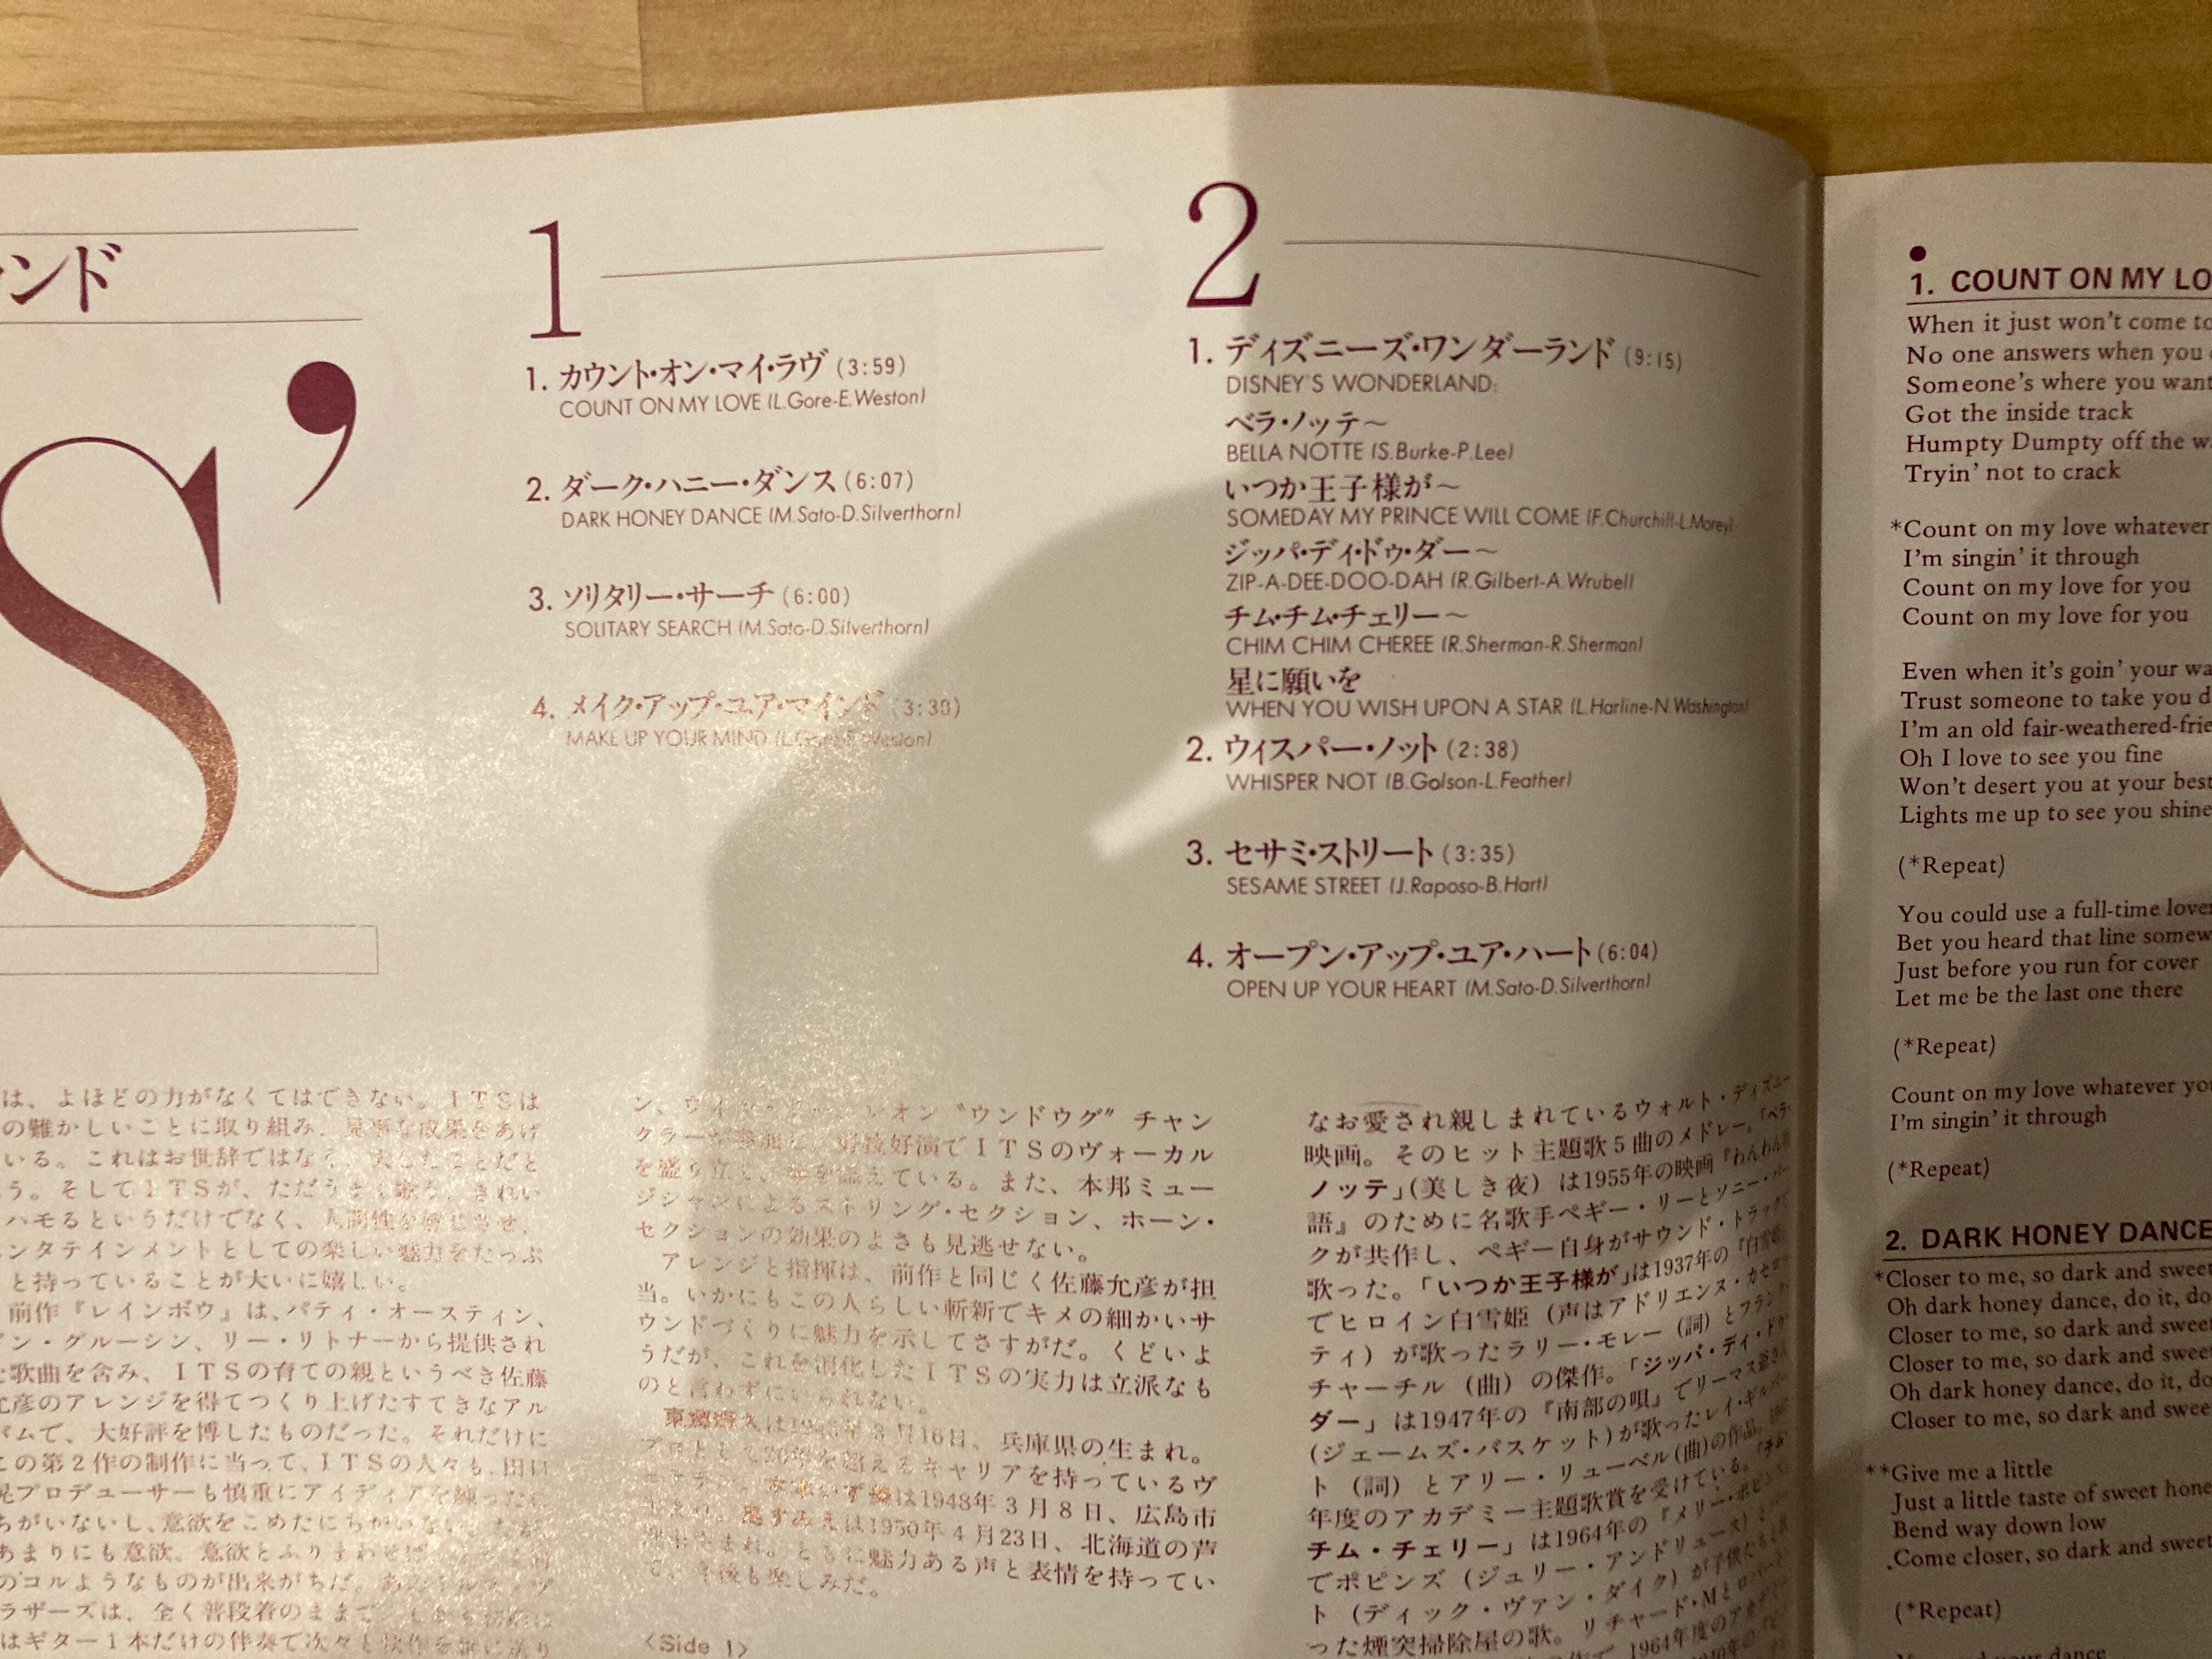 ンド
S’
1
1. カウント・オン・マイ・ラヴ (3:59)
COUNT ON MY LOVE (L.Gore-E.Weston)
2. ダーク・ハニー・ダンス (6:07)
DARK HONEY DANCE (M.Sato-D.Silverthorn)
3. ソリタリー・サーチ (6:00)
SOLITARY SEARCH (M.Sato-D.Silverthorn)
4. メイク・アップ・ユア・マインド (3:30)
MAKE UP YOUR MIND (L.Gore-E.Weston)
2
1. ディズニーズ・ワンダーランド (9:15)
DISNEY'S WONDERLAND:
ベラ・ノッテ〜
BELLA NOTTE (S.Burke-P.Lee)
いつか王子様が〜
SOMEDAY MY PRINCE WILL COME (F.Churchill-L.Morey)
ジッパ・ディ・ドゥ・ダー〜
ZIP-A-DEE-DOO-DAH (R.Gilbert-A.Wrubel)
チム・チム・チェリー〜
CHIM CHIM CHEREE (R.Sherman-R.Sherman)
星に願いを
WHEN YOU WISH UPON A STAR (L.Harline-N.Washington)
2. ウィスパー・ノット (2:38)
WHISPER NOT (B.Golson-L.Feather)
3. セサミ・ストリート (3:35)
SESAME STREET (J.Raposo-B.Hart)
4. オープン・アップ・ユア・ハート (6:04)
OPEN UP YOUR HEART (M.Sato-D.Silverthorn)
は、よほどの力がなくてはできない。ITSは
の難かしいことに取り組み、見事な成果をあげ
いる。これはお世辞ではなく、
う。そしてITSが、ただうまく歌う、きれい
ハモるというだけでなく、人間性を感じさせ、
ンタテインメントとしての楽しい魅力をたっぷ
と持っていることが大いに嬉しい。
前作『レインボウ』は、パティ・オースティン、
ン・グルーシン、リー・リトナーから提供され
歌曲を含み、ITSの育ての親というべき佐藤
允彦のアレンジを得てつくり上げたすてきなアル
バムで、大好評を博したものだった。それだけに
この第2作の制作に当って、ITSの人々も、田口
晃プロデューサーも慎重にアイディアを練った
ちがいないし、意欲をこめたにちがいない。
あまりにも意欲、意欲とふりまわせば
のコルようなものが出来がちだ。
ラザーズは、全く普段着のままで、
はギター1本だけの伴奏で次々と
レオン“ウンドウグ”チャン
クラーが参加し、好技好演でITSのヴォーカル
を盛り立て、花を添えている。また、本邦ミュー
ジシャンによるストリング・セクション、ホーン・
セクションの効果のよさも見逃せない。
アレンジと指揮は、前作と同じく佐藤允彦が担
当。いかにもこの人らしい斬新でキメの細かいサ
ウンドづくりに魅力を示してさすがだ。くどいよ
うだが、これを消化したITSの実力は立派なも
のと言わずにいられない。
3月16日、兵庫県の生まれ。
プロとして20年を超えるキャリアを持っているヴ
は1948年3月8日、広島市
生まれ。 すみえは1950年4月23日、北海道の芦
生まれ。ともに魅力ある声と表情を持ってい
て、今後も楽しみだ。
〈Side 1〉
なお愛され親しまれているウォルト・ディズニー
映画。そのヒット主題歌5曲のメドレー。「ベラ・
ノッテ」(美しき夜) は1955年の映画『わんわん物
語』のために名歌手ペギー・リーとソニー・バー
クが共作し、ペギー自身がサウンド・トラックで
歌った。「いつか王子様が」は1937年の『白雪姫』
でヒロイン白雪姫 (声はアドリエンヌ・カセロッ
ティ) が歌ったラリー・モレー (詞) とフランク・
チャーチル (曲) の傑作。「ジッパ・ディ・ドゥ・
ダー」は1947年の『南部の唄』でリーマス爺さん
(ジェームズ・バスケット)が歌ったレイ・ギルバー
ト (詞) とアリー・リューベル(曲)の作品。1947
年度のアカデミー主題歌賞を受けている。「チム・
チム・チェリー」は1964年の『メリー・ポピンズ』
でポピンズ (ジュリー・アンドリュース) と
ト (ディック・ヴァン・ダイク) が子供たちと
った煙突掃除屋の歌。リチャード・Mとロバート
1964年度のアカデミー
1. COUNT ON MY LO
When it just won't come to
No one answers when you
Someone's where you want
Got the inside track
Humpty Dumpty off the w
Tryin' not to crack
*Count on my love whatever
I'm singin' it through
Count on my love for you
Count on my love for you
Even when it's goin' your wa
Trust someone to take you d
I'm an old fair-weathered-frie
Oh I love to see you fine
Won't desert you at your best
Lights me up to see you shine
(*Repeat)
You could use a full-time lover
Bet you heard that line somew
Just before you run for cover
Let me be the last one there
(*Repeat)
Count on my love whatever you
I'm singin' it through
(*Repeat)
2. DARK HONEY DANCE
*Closer to me, so dark and sweet
Oh dark honey dance, do it, do
Closer to me, so dark and sweet
Closer to me, so dark and sweet
Oh dark honey dance, do it, do
Closer to me, so dark and swee
**Give me a little
Just a little taste of sweet hone
Bend way down low
Come closer, so dark and sweet
(*Repeat)
your dance